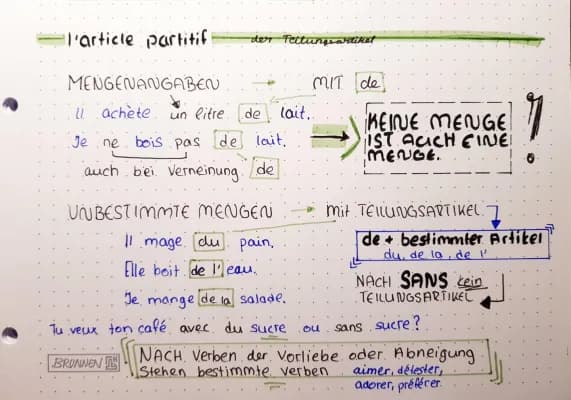 l'article partitif der Teilungsartikel
MENGENANGABEN → MIT de
Il achète un litre de lait.
Je ne bois pas de lait.
auch bei Verneinung de
KEINE MENGE
IST AUCH EINE
MENGE.
!
UNBESTIMMTE MENGEN → mit TEILUNGSARTIKEL
Il mage du pain.
Elle boit de l'eau.
Je mange de la salade.
de + bestimmter Artikel
du, de la, de l'
NACH SANS kein
TEILUNGSARTIKEL
Tu veux ton café avec du sucre ou sans sucre?
BRUNNEN
NACH Verben der Vorliebe oder Abneigung
Stehen bestimmte verben aimer, détester,
adorer, préférer